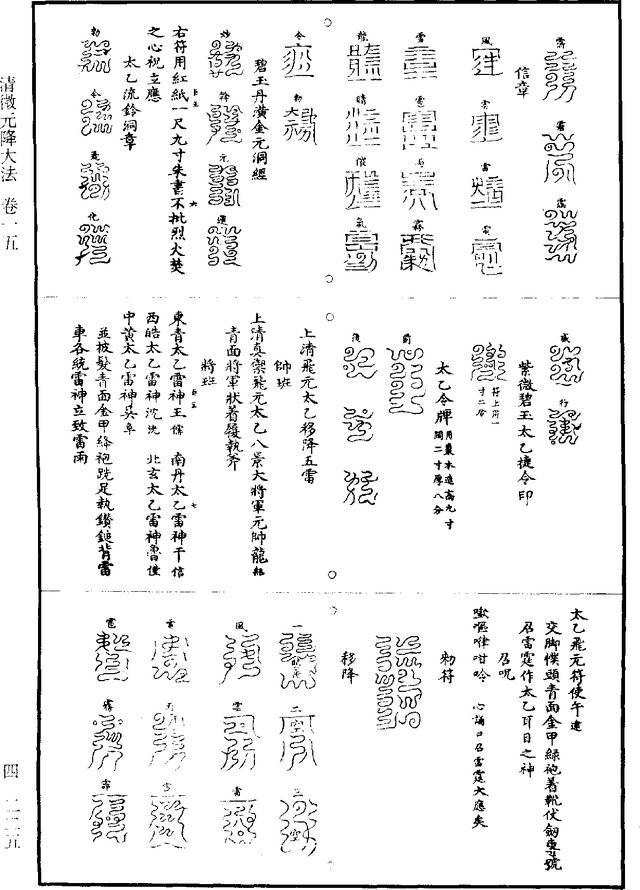 清微元降大法　卷一五
四—二二五
霄
信章
風　雲　雷　電
雪　雹　雨　霧
龍　晴　候　氣
令　勑
碧玉丹潢金元洞經
炒　降　元　運
右符用紅紙一尺九寸朱書不批烈火焚
之心祝立應
太乙流鈴洞章
勑　令　化
威　行
紫微碧玉太乙捷令印
符上用一
寸二分
太乙令牌用棗木造高九寸
闊二寸厚八分
前
後
上清飛元太乙移降五雷
帥班
上清真禦飛元太乙八景大將軍元帥龍
青面將軍狀着髮執斧
將班
東青太乙雷神王　南丹太乙雷神干信
西皓太乙雷神沈　北玄太乙雷神魯
中黃太乙雷神吳卓
並披髮青面金甲絳袍跣足執鑽鎚背雷
車各統雷神立致雷雨
太乙飛元符使午達
交脚幞頭青面金甲綠袍着靴伏劔東號
召雷霆作太乙耳目之神
召呪
嗽嘔㖀吽唥　心誦口召雷霆大應矣
勑符
移降
一　二　三
風　雲　雷
雪　雨　雹
電　霧　霏